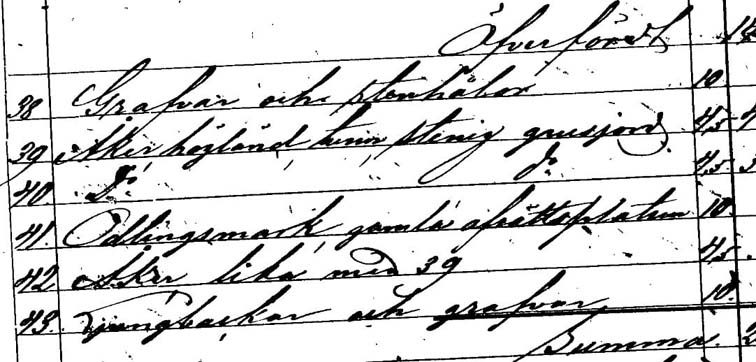 Öfverfördt
38 Grafvar och stenhälar 10
39 Åker, högländ tunn stenig grusjord 45
40 D:o D:o 45
41 Odlingsmark, gamla 10
42 Åker lika med 39 45
43 och grafvar 10
Summa